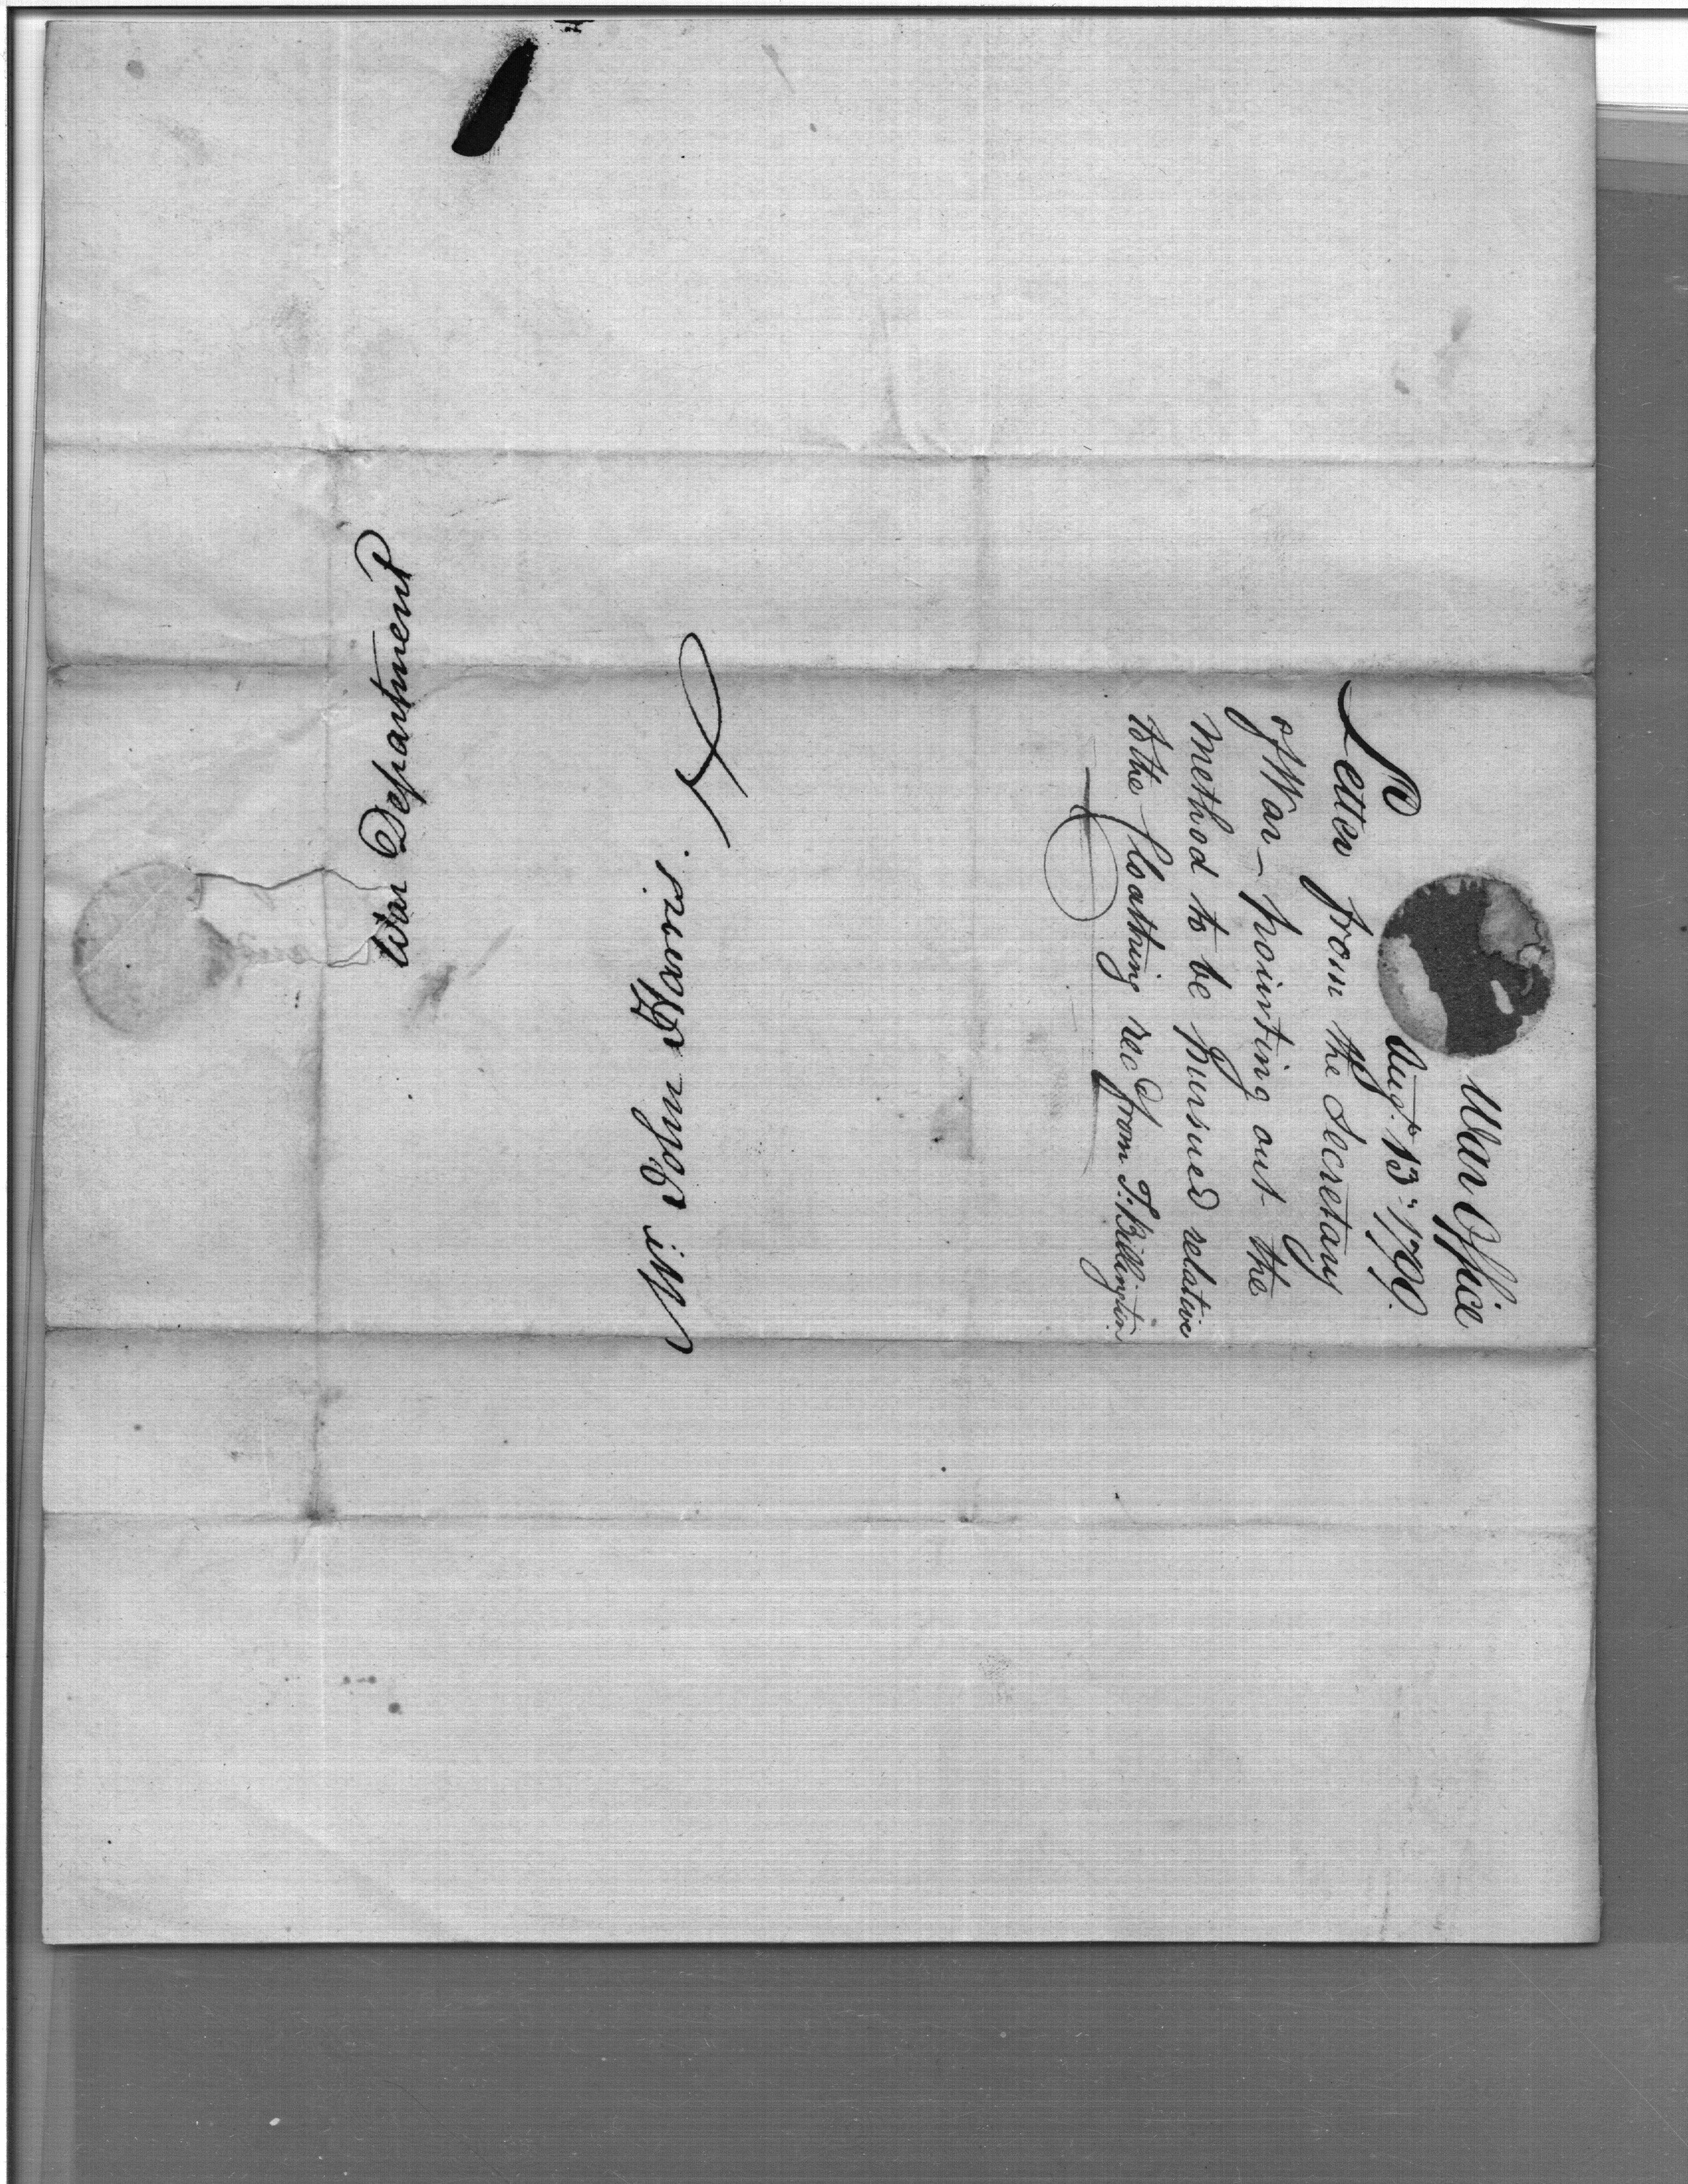 War Department
Mr. John Harris.
War Office
Augt. 13th 1799.
Letter from the Secretary
of War – pointing out the
method to be pursued relative
to the Cloathing recd from T: Billington